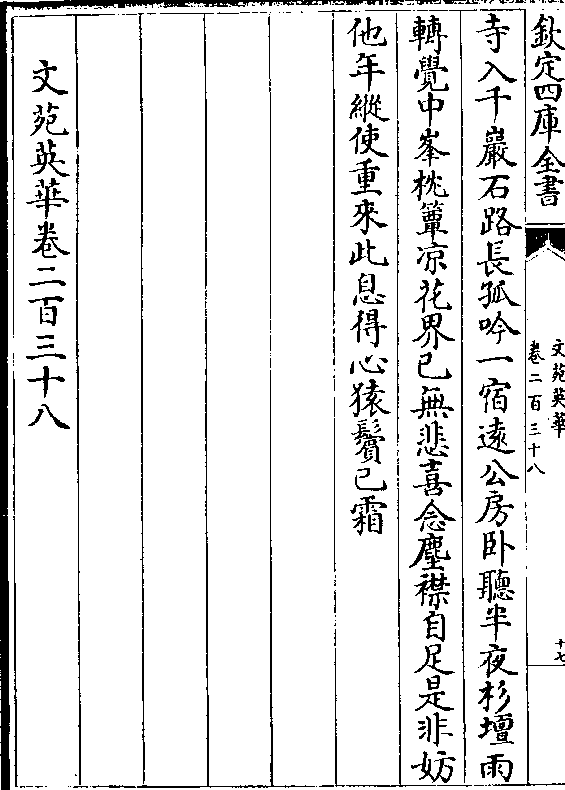 欽定四庫全書
文苑英華
卷二百三十八
十七
寺入千巖石路長孤吟一宿遠公房卧聽半夜杉壇雨
轉覺中峯枕簟凉花界已無悲喜念塵襟自足是非妨
他年縱使重來此息得心猿鬢已霜
文苑英華卷二百三十八